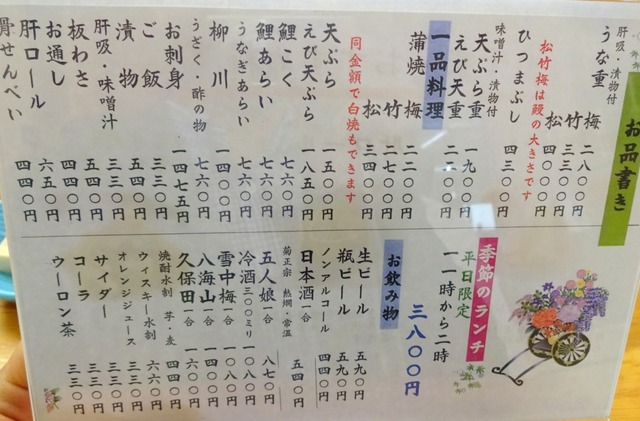 お品書き
うな重 肝吸・漬物付
梅 二八〇〇円
竹 三三〇〇円
松 四〇〇〇円
松竹梅は鰻の大きさです
ひつまぶし 四三〇〇円
味噌汁・漬物付
天ぷら重 一九〇〇円
えび天重 二二〇〇円
一品料理
蒲焼 梅 二二〇〇円
竹 二七〇〇円
松 三四〇〇円
同金額で白焼もできます
天ぷら 一五〇〇円
えび天ぷら 一八五〇円
鯉こく 七六〇円
鯉あらい 七六〇円
うなぎあらい 七六〇円
柳川 一四〇〇円
うざく・酢の物 七六〇円
お刺身 一四七五円
ご飯 三三〇円
漬物 五四〇円
肝吸・味噌汁 三三〇円
板わさ 五四〇円
お通し 四四〇円
肝ロール 六五〇円
骨せんべい 四四〇円
季節のランチ
平日限定
一一時から二時
三八〇〇円
お飲み物
生ビール 五九〇円
瓶ビール 五九〇円
ノンアルコール 四四〇円
日本酒 一合 五四〇円
菊正宗 熱燗・常温
五人娘 一合 八七〇円
冷酒 三〇〇ミリ 一〇八〇円
雪中梅 一合 一〇八〇円
八海山 一合 一四〇〇円
久保田 一合 一六〇〇円
焼酎水割 芋・麦 六六〇円
ウィスキー水割 六六〇円
オレンジジュース 三三〇円
サイダー 三三〇円
コーラ 三三〇円
ウーロン茶 三三〇円